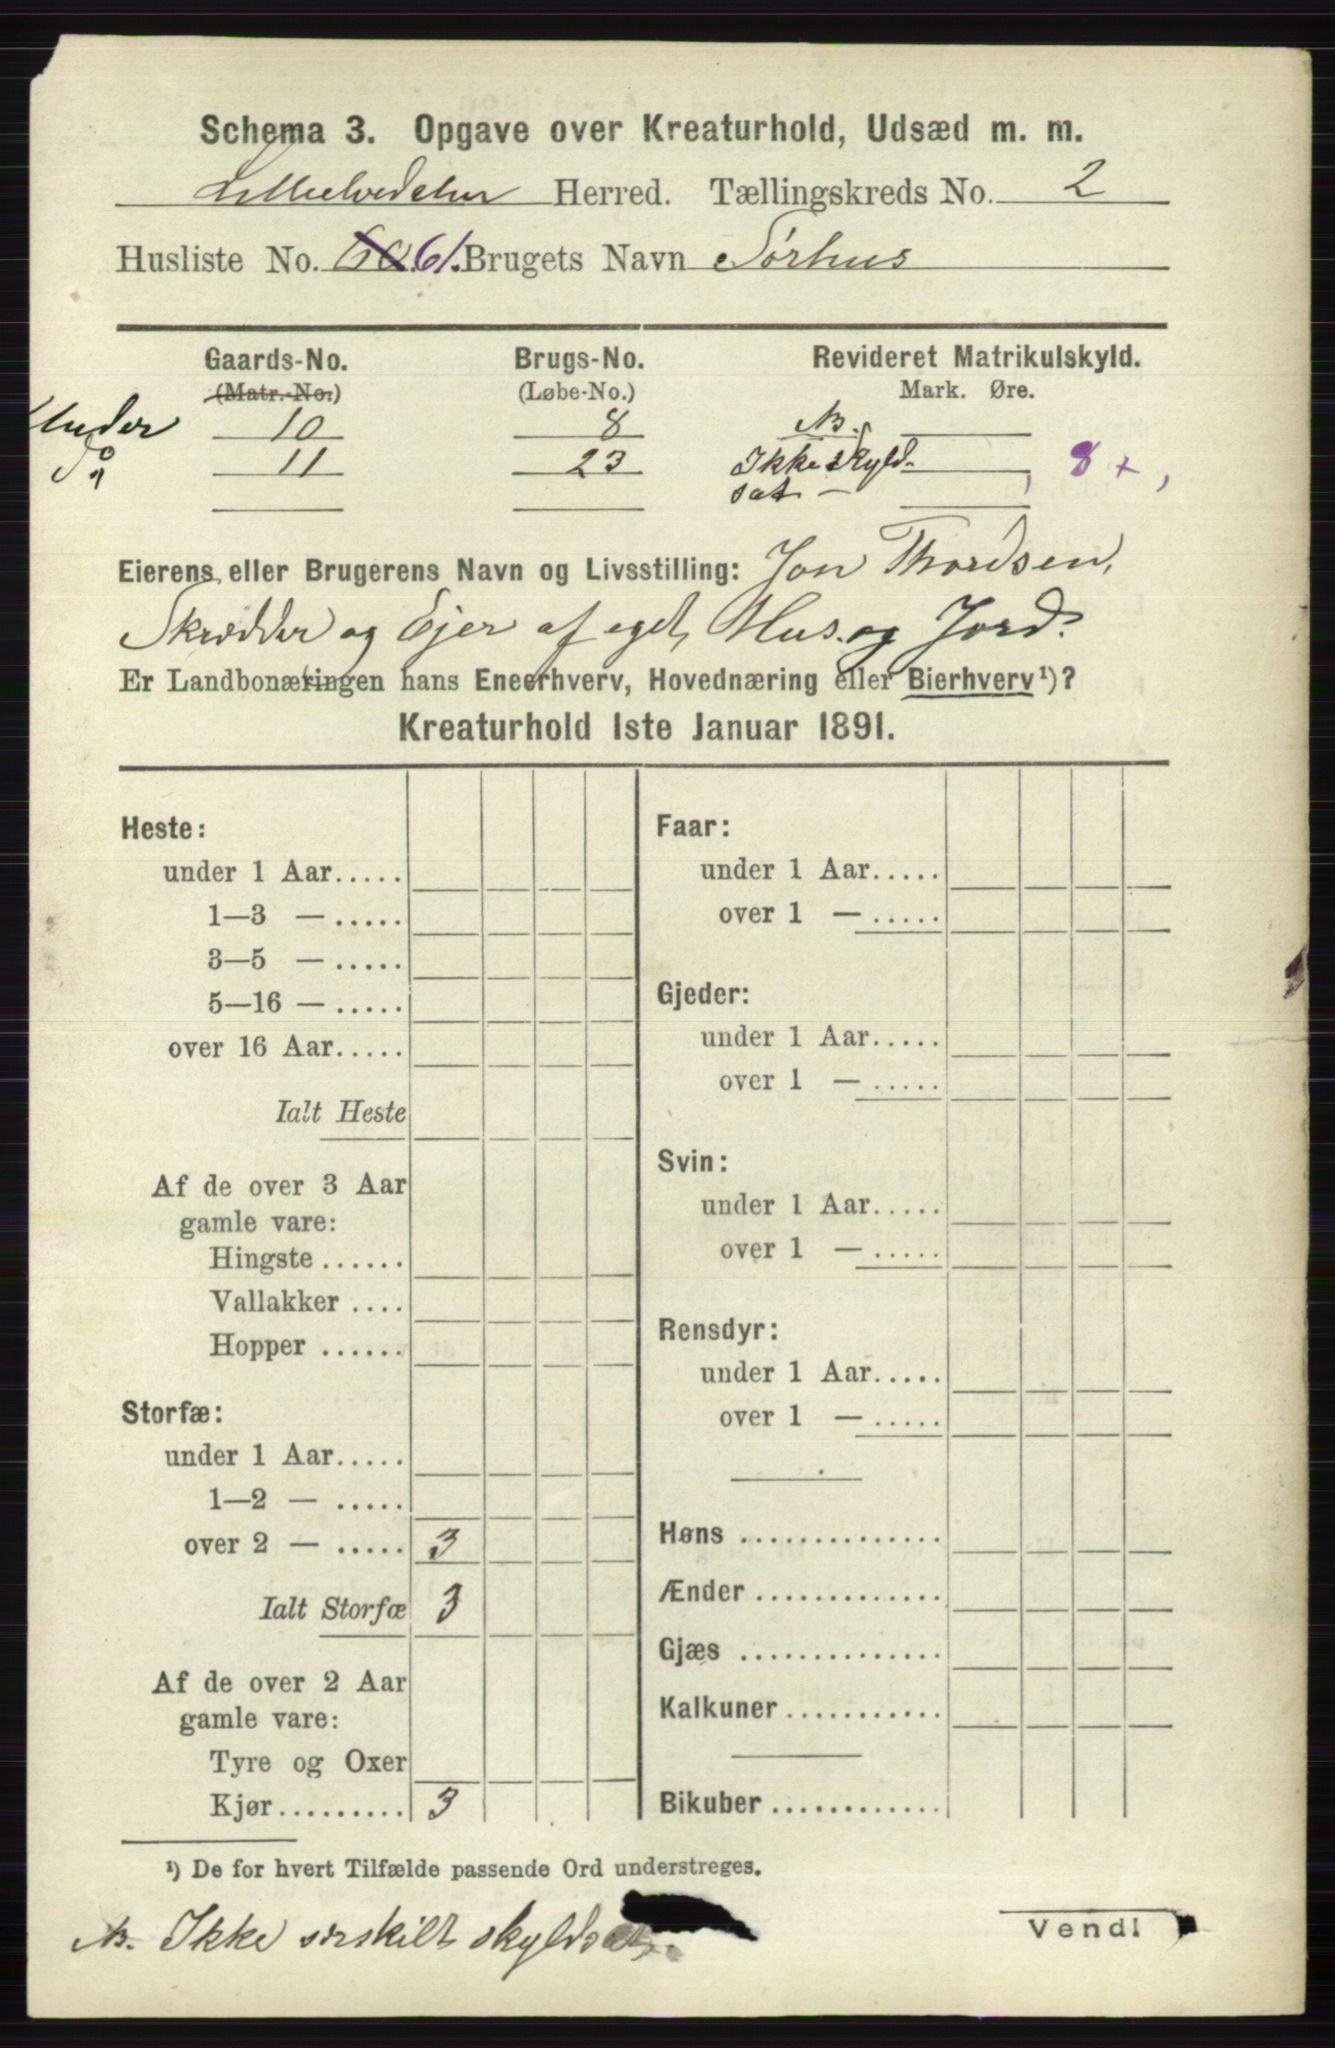 Schema 3. Opgave over Kreaturhold, Udsæd m. m.
Lilleelvedalen Herred. Tællingskreds No. 2
Husliste No. 60. 61. Brugets Navn Sörhus
Gaards-No. Brugs-No. Revideret Matrikulskyld.
(Matr.-No.) (Løbe-No.) Mark. Øre.
Under 10 8 NB.
11 23 Ikke skyld- 8 +
sat -
Eierens eller Brugerens Navn og Livsstilling: Jon Thordsen,
Skrædder og Ejer af eget Hus og Jord.
Er Landbonæringen hans Eneerhverv, Hovednæring eller Bierhverv¹)?
Kreaturhold 1ste Januar 1891.
Heste:
under 1 Aar.....
1—3 — .....
3—5 — .....
5—16 — .....
over 16 Aar.....
Ialt Heste
Af de over 3 Aar
gamle vare:
Hingste ......
Vallakker ....
Hopper ......
Storfæ:
under 1 Aar.....
1—2 — .....
over 2 — ..... 3
Ialt Storfæ 3
Af de over 2 Aar
gamle vare:
Tyre og Oxer
Kjør......... 3
Faar:
under 1 Aar.....
over 1 — .....
Gjeder:
under 1 Aar.....
over 1 — .....
Svin:
under 1 Aar.....
over 1 — .....
Rensdyr:
under 1 Aar.....
over 1 — .....
Høns ..............
Ænder .............
Gjæs ..............
Kalkuner ...........
Bikuber ............
¹) De for hvert Tilfælde passende Ord understreges.
NB. Ikke særskilt skyldsat.
Vend!